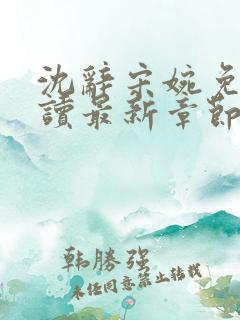 沈辭宋婉免
讀最新章節
韩勝强
未任同意禁止转载